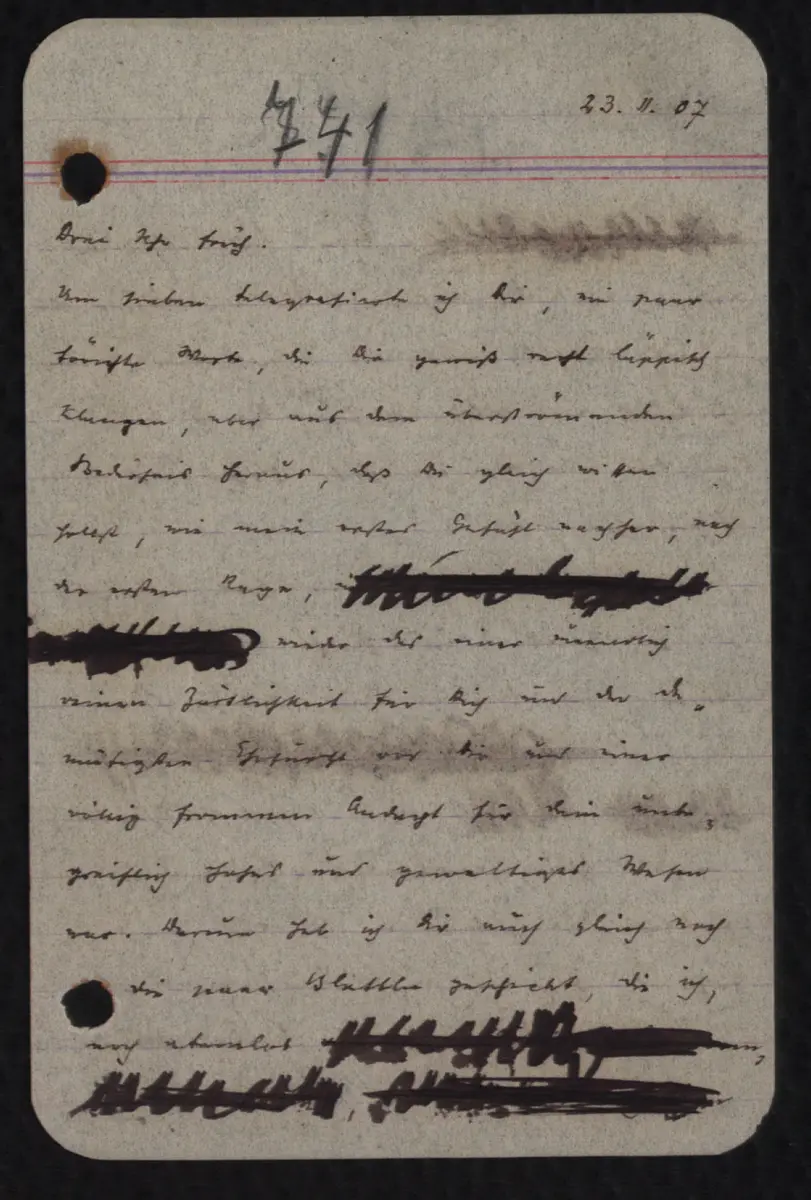 741
23. II. 07
Drei Uhr früh.
Um sieben telegrafierte ich Dir, ein paar
törichte Worte, die Dir gewiß recht läppisch
klangen, aber aus dem überströmenden
Bedürfnis heraus, daß Du gleich wissen
sollst, wie mein erstes Gefühl nachher, nach
der ersten Rage,
wieder das einer innerlich
reinen Zärtlichkeit für Dich und der de„
mütigsten Ehrfurcht vor Dir und einer
völlig frommen Andacht für Dein unbe„
greiflich hohes und gewaltiges Wesen
war. Darum hab ich Dir auch gleich noch
die paar Blattln geschickt, die ich,
noch atemlos